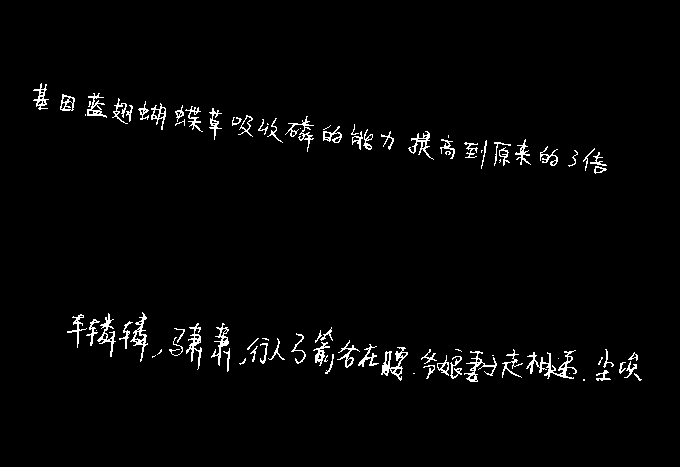 基因蓝翅蝴蝶草吸收磷的能力提高到原来的3倍
车辚辚,马萧萧,行人弓箭各在腰.爷娘妻子走相送.尘埃